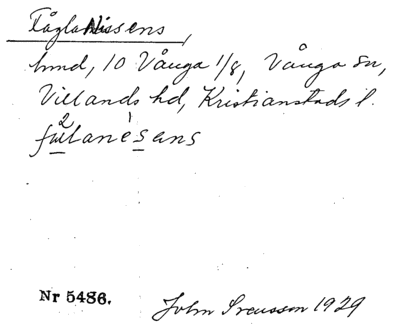 FåglaNissens,
hmd, 10 Vånga 1/8, Vånga sn,
Villands hd, Kristianstads l.
Nr 5486. John Svensson 1929